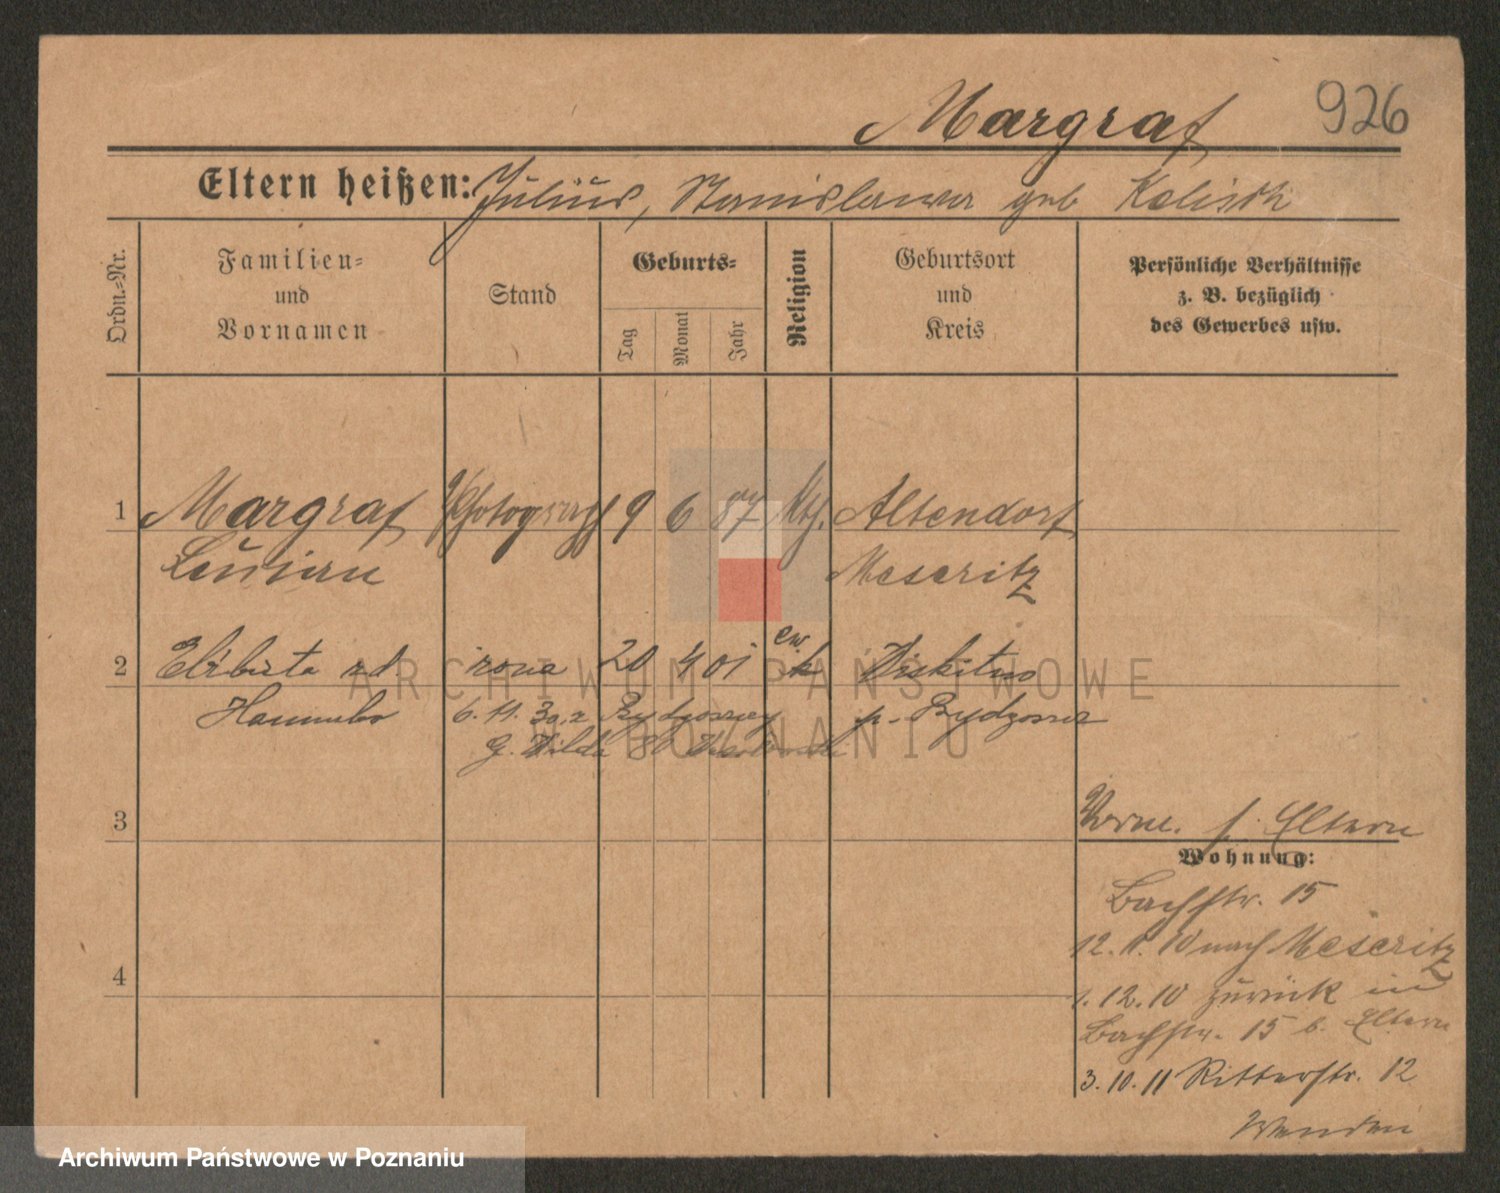 926
Margraf
Eltern heißen: Julius, Stanislawa geb Kalisch
Ordn.-Nr.
Familien- und Vornamen
Stand
Geburts-
Tag
Monat
Jahr
Religion
Geburtsort und Kreis
Persönliche Verhältnisse z. B. bezüglich des Gewerbes usw.
1 Margraf Photograph 9 6 87 Kth. Altendorf
Lucian Meseritz
2 Elżbieta zd żona 20 4 01 ew k
6. 11. Bydgoszcz p. Bydgoszcz
G. Wilda
3
4
Vorne. f. Eltern
Wohnung:
Bachstr. 15
12. 1. 10 nach Meseritz
1. 12. 10 zurück in
Bachstr. 15 b. Eltern
3. 10. 11 Ritterstr. 12
Wenden
ARCHIWUM PAŃSTWOWE
W POZNANIU
Archiwum Państwowe w Poznaniu